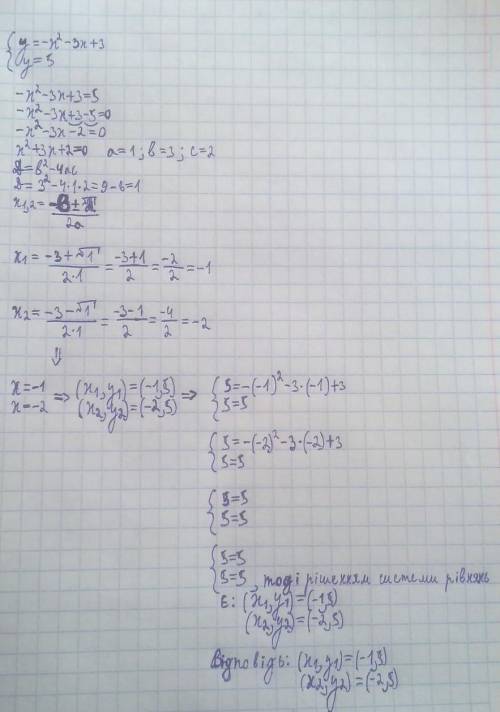 { y=-x²-3x+3
{ y=5
-x²-3x+3=5
-x²-3x+3-5=0
-x²-3x-2=0
x²+3x+2=0 a=1; b=3; c=2
D=b²-4ac
D=3²-4·1·2=9-8=1
x1,2= (-b±√D)/2a
x1= (-3+√1)/(2·1) = (-3+1)/2 = -2/2 =-1
x2= (-3-√1)/(2·1) = (-3-1)/2 = -4/2 =-2
⇓
x=-1
x=-2
=> (x1,y1)=(-1,5)
(x2,y2)=(-2,5) =>
{ 5=-(-1)²-3·(-1)+3
{ 5=5
{ 5=-(-2)²-3·(-2)+3
{ 5=5
{ 5=5
{ 5=5
{ 5=5
{ 5=5, тоді рішенням системи рівнянь
є: (x1,y1)=(-1,5)
(x2,y2)=(-2,5)
Відповідь: (x1,y1)=(-1,5)
(x2,y2)=(-2,5)